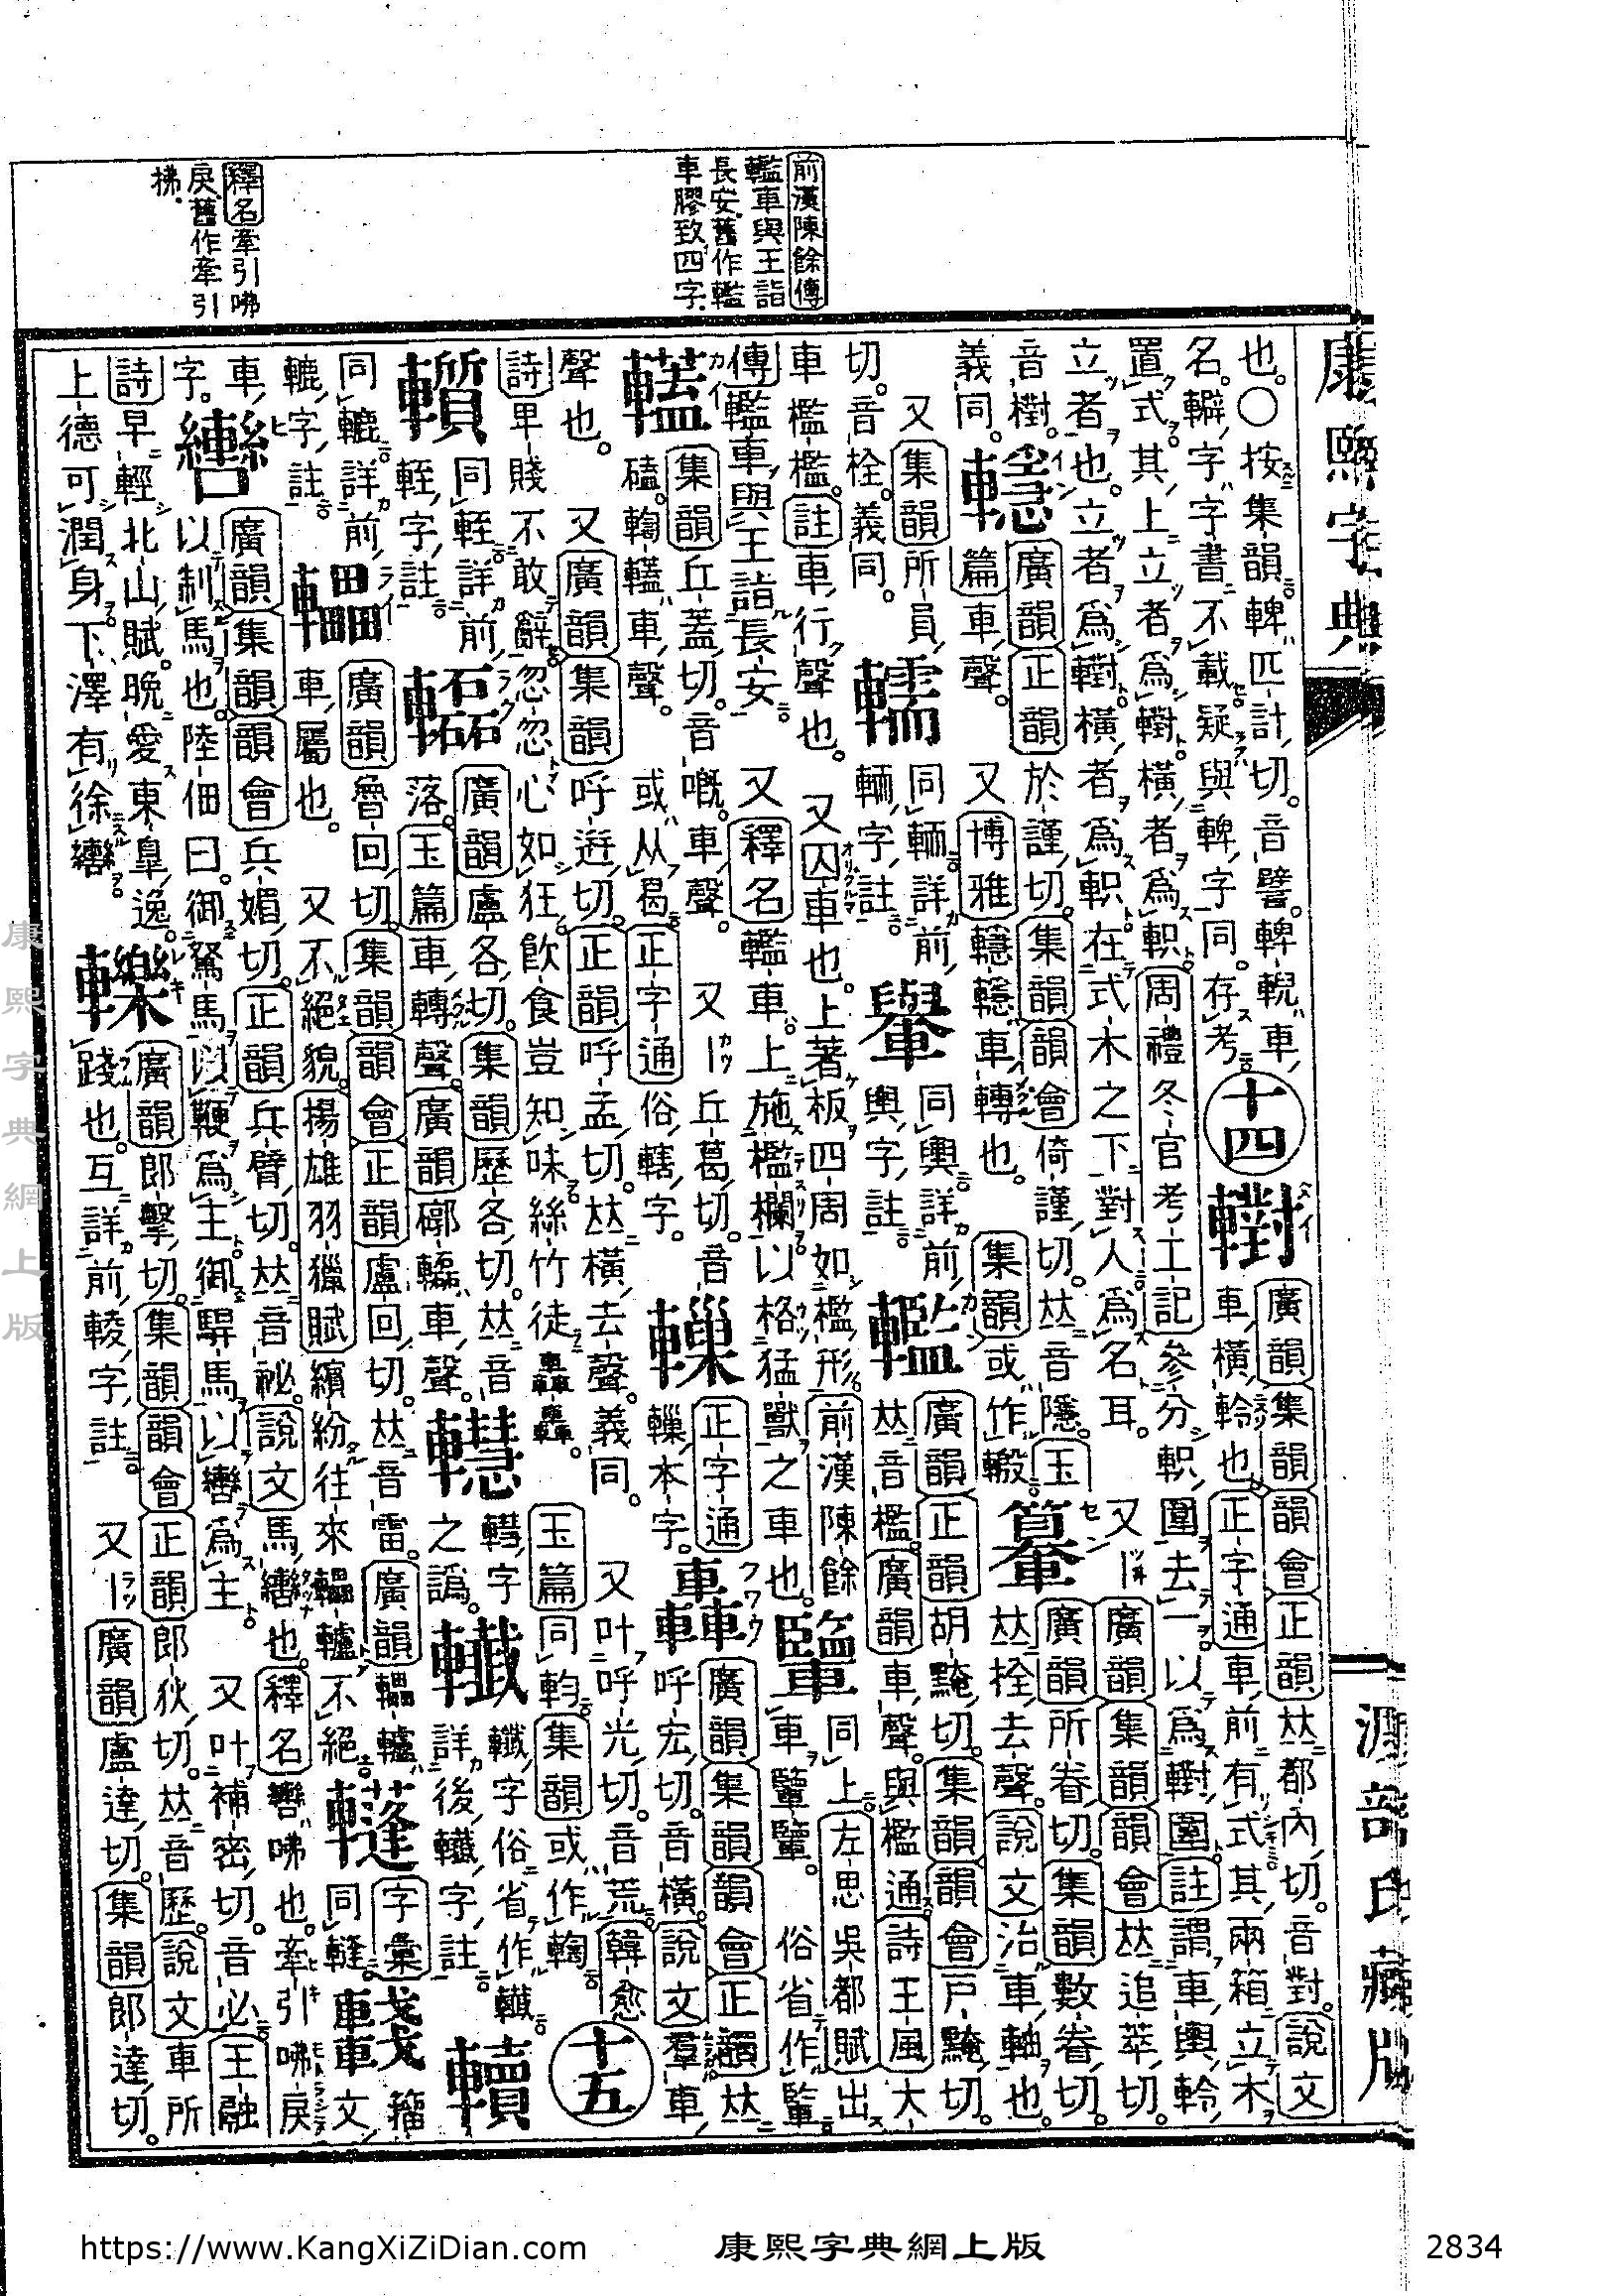 前漢陳餘傳
轞車與王詣
長安舊作轞
車膠致四字
釋名牽引咈
戾舊作牽引
拂
康熙字典
源部氏藏版
也。○按集韻䡟匹計切。音譬。䡟輗車
名。䡶字字書不載疑與䡟字同。存考
十四
轛
廣韻集韻韻會正韻𠀤都內切。音對。說文
車橫軨也。正字通車前有式其兩箱立木
置式其上立者爲轛橫者爲軹。周禮冬官考工記參分軹圍去一以爲轛圍註謂車輿軨
立者也。立者爲轛橫者爲軹在式木之下對人爲名耳。
又廣韻集韻韻會𠀤追萃切
音㯡。
義同。
廣韻正韻於謹切。集韻韻會倚謹切。𠀤音隱。玉
篇車聲。又博雅轉也。集韻或作
廣韻所眷切。集韻數眷切。
𠀤栓去聲。說文治車軸也。
又集韻所員
切。音栓。義同。
同輀詳前
輀字註
同輿詳前
輿字註
轞
廣韻正韻胡黤切。集韻韻會戸黤切。
𠀤音檻。廣韻車聲。與檻通。詩王風大
車檻檻。註車行聲也。又囚車也。上著板四周如檻形。前漢陳餘
傳轞車與王詣長安。又釋名轞車。上施檻欄以格猛獸之車也。
同上。左思吳都賦出
車。俗省作
集韻丘蓋切。音嘅。車聲。又丘葛切。音
磕。車聲。或从曷。正字通俗轄字。
正字通
本字。
轟
廣韻集韻韻會正韻𠀤
呼宏切。音橫。說文羣車
聲也。又廣韻集韻呼迸切。正韻呼孟切。𠀤橫去聲。義同。又叶呼光切。音荒。韓愈
詩卑賤不敢辭忽忽心如狂。飮食豈知味絲竹徒轟轟。
玉篇同䡘集韻或作
十五
同輊詳前
輊字註
廣韻盧各切。集韻歷各切。𠀤音
落。玉篇車轉聲。廣韻車聲。
字
之譌。
字俗省作
詳後字註
同轆詳前
轆字註
廣韻魯回切。集韻韻會正韻盧回切。𠀤音雷。廣韻轠轤
車屬也。又不絕貌。揚雄羽獵賦繽紛往來轠轤不絕
字彙
同
籀文
車字。
轡
廣韻集韻韻會兵媚切。正韻兵臂切。𠀤音祕。說文馬轡也。釋名轡咈也。牽引咈戾
以制馬也。陸佃曰。御駑馬以鞭爲主。御駻馬以轡爲主。又叶補密切。音必。王融
詩早輕北山賦。晚愛東皐逸。
上德可潤身下澤有徐轡
轢
廣韻郎擊切。集韻韻會正韻郎狄切。𠀤音歷。說文車所
踐也。互詳前輘字註。又廣韻盧達切。集韻郎達切。
康熙字典網上版
https://www.KangXiZiDian.com
康熙字典網上版
2834